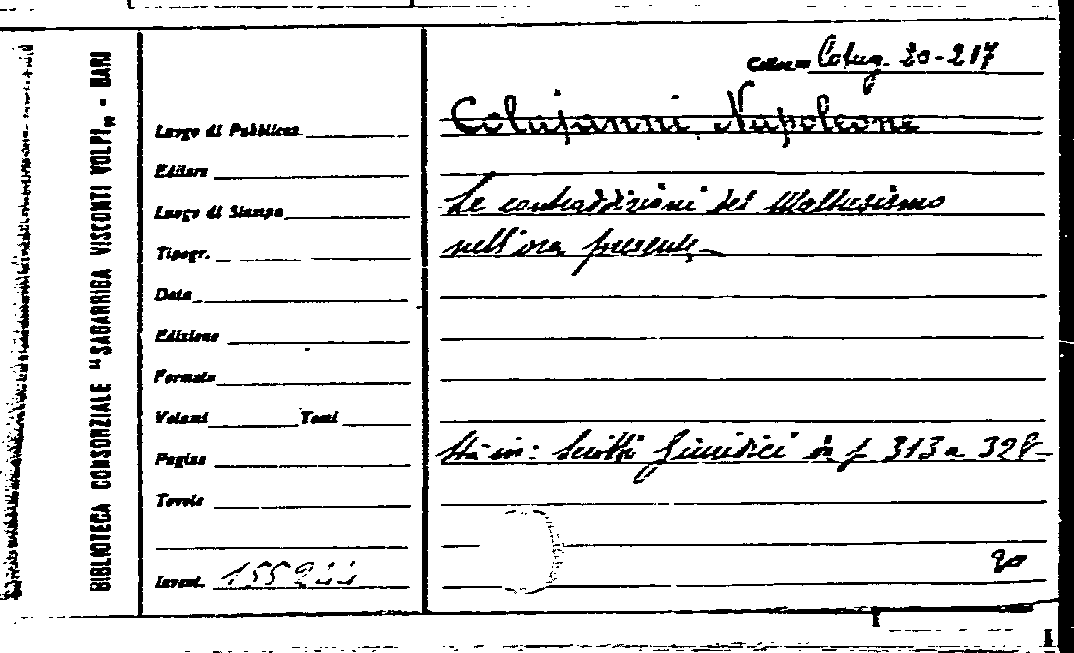 BIBLIOTECA CONSORZIALE "SAGARRIGA VISCONTI VOLPI" - BARI
Luogo di Pubblicaz.
Editore
Luogo di Stampa
Tipogr.
Data
Edizione
Formato
Volumi Tomi
Pagine
Tavole
Invent. 1552
Collocaz. 20-217
Colajanni, Napoleone
Le contraddizioni del Maltusismo
nell'ora presente
Sta in: Scritti Giuridici da p. 313 a 328-